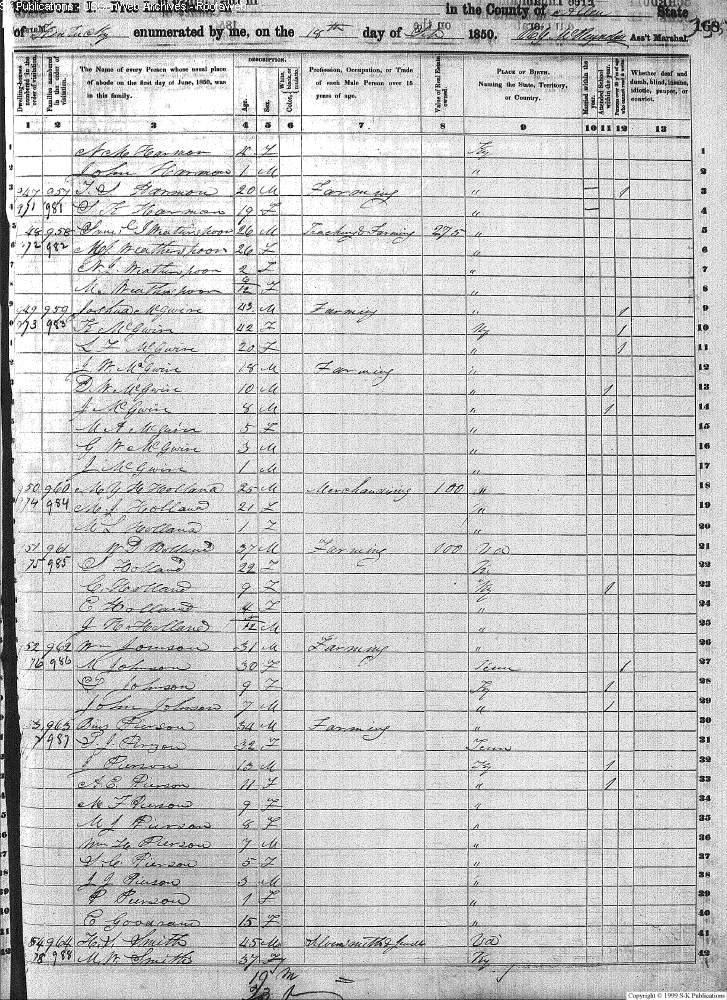 S-K Publications - USGenWeb Archives - Rootsweb
in the County of Allen State
168
of Kentucky enumerated by me, on the 18th day of Oct 1850. Ass't Marshal.
Dwelling-houses numbered in the order of visitation.
Families numbered in the order of visitation.
The Name of every Person whose usual place of abode on the first day of June, 1850, was in this family.
DESCRIPTION.
Age.
Sex.
Color, White, black, or mulatto.
Profession, Occupation, or Trade of each Male Person over 15 years of age.
Value of Real Estate owned.
PLACE OF BIRTH. Naming the State, Territory, or Country.
Married within the year.
Attended School within the year.
Whether deaf and dumb, blind, insane, idiotic, pauper, or convict.
1 2 3 4 5 6 7 8 9 10 11 12 13
1 N. M Harmon 4 F Ky
2 John Harmon 1 M "
3 947 957 T. S Harmon 20 M Farming " 1
4 971 981 S. K Harmon 19 F "
5 948 958 Weatherspoon 26 M Farming 275 "
6 972 982 M J Weatherspoon 26 F "
7 N. S. Weatherspoon 2 F "
8 M. Weatherspoon /12 F "
9 949 959 Joshua McGwire 43 M Farming " 1
10 973 983 K McGwire 42 F Ky 1
11 L F McGwire 20 F " 1
12 J W McGwire 18 M Farming "
13 B W McGwire 10 M " 1
14 J McGwire 8 M " 1
15 M A McGwire 5 F "
16 G W McGwire 3 M "
17 J McGwire 1 M "
18 950 960 M. Y H Holland 25 M Merchandising 100 "
19 974 984 M. J Holland 21 F "
20 M L Holland 1 F "
21 951 961 W D Holland 37 M Farming 100 Va
22 975 985 S Holland 22 F Ky
23 C. Holland 9 F Ky 1
24 E Holland 4 F "
25 J H Holland /12 M "
26 952 962 Wm Jonson 31 M Farming "
27 976 986 M Johnson 30 F Tenn 1
28 Johnson 9 F Ky 1
29 John Johnson 7 M " 1
30 963 Pierson 34 M Farming "
31 987 S J Pierson 32 F Tenn
32 J Pierson 13 M Ky 1
33 A E Pierson 11 F " 1
34 M F Pierson 9 F "
35 M J Pierson 8 F "
36 Wm H Pierson 7 M "
37 S. C. Pierson 5 F "
38 J J Pierson 3 M "
39 P Pierson 1 F "
40 E Goodrum 15 F "
41 954 964 H. S Smith 45 M Silversmith & Va
42 978 988 M W Smith 37 F Ky
19 m
23 f
=
Copyright © 1999 S-K Publications